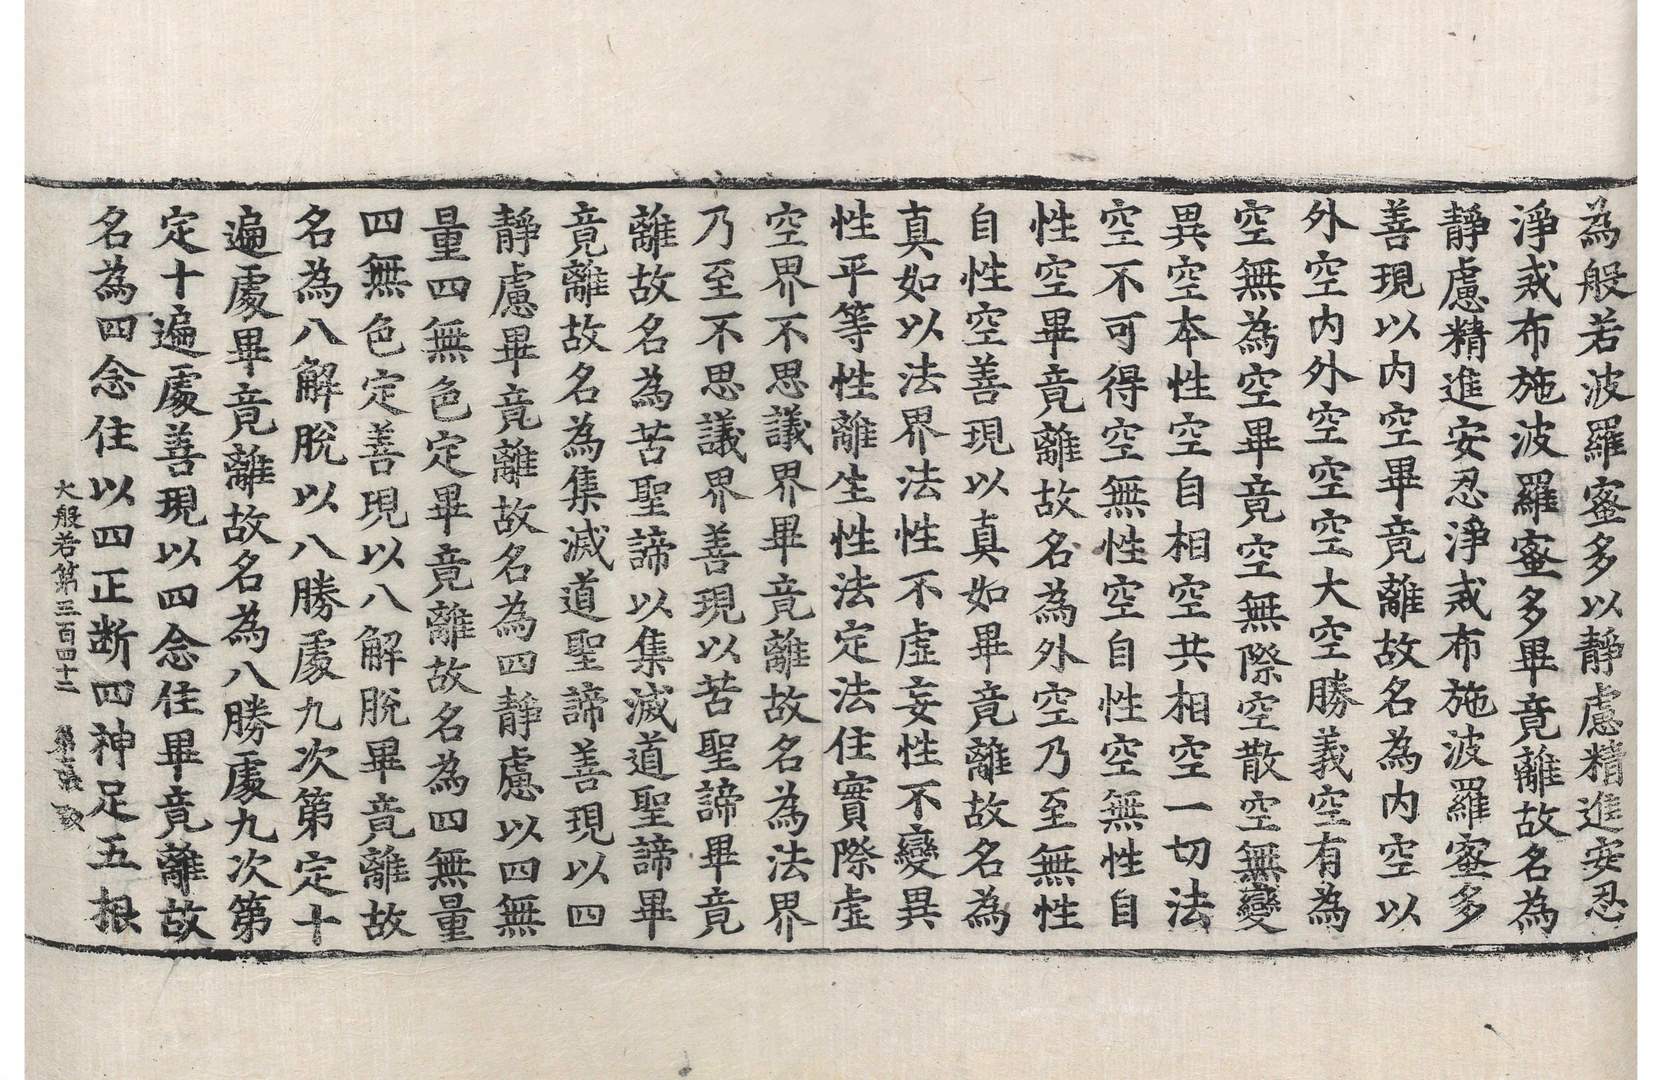 為般若波羅蜜多以靜慮精進安忍
淨戒布施波羅蜜多畢竟離故名為
靜慮精進安忍淨戒布施波羅蜜多
善現以内空畢竟離故名為内空以
外空内外空空空大空勝義空有為
空無為空畢竟空無際空散空無變
異空本性空自相空共相空一切法
空不可得空無性空自性空無性自
性空畢竟離故名為外空乃至無性
自性空善現以真如畢竟離故名為
真如以法界法性不虛妄性不變異
性平等性離生性法定法住實際虛
空界不思議界畢竟離故名為法界
乃至不思議界善現以苦聖諦畢竟
離故名為苦聖諦以集滅道聖諦畢
竟離故名為集滅道聖諦善現以四
靜慮畢竟離故名為四靜慮以四無
量四無色定畢竟離故名為四無量
四無色定善現以八解脫畢竟離故
名為八解脫以八勝處九次第定十
遍處畢竟離故名為八勝處九次第
定十遍處善現以四念住畢竟離故
名為四念住以四正断四神足五根
大般若第三百四十二